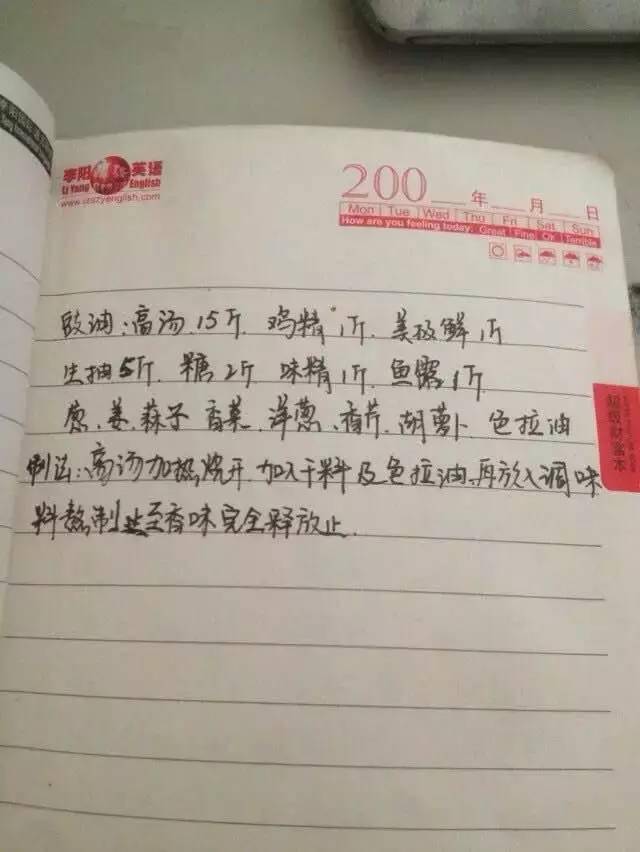 李阳 英语
Li Yang English
200 年 月 日
Mon Tue Wed Thu Fri Sat Sun
How are you feeling today: Great Fine Ok Terrible
豉油:高汤.15斤. 鸡精1斤. 美极鲜1斤
生抽5斤. 糖2斤 味精1斤. 鱼露1斤
葱、姜、蒜子 香菜、洋葱、香芹、胡萝卜、色拉油
制法:高汤加热烧开.加入干料及色拉油、再放入调味
料熬制止至香味完全释放止.
超级财富本